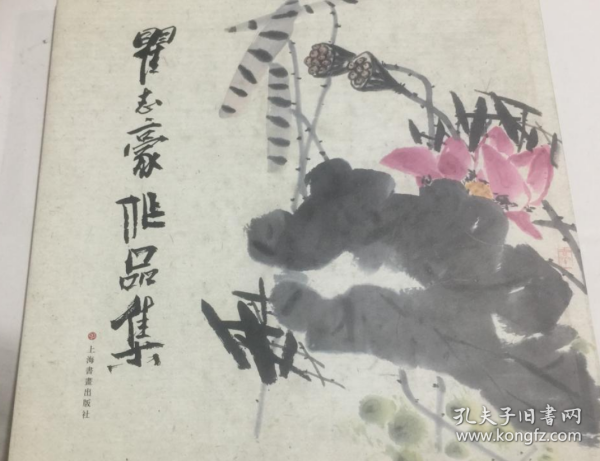 瞿志豪作品集
上海書畫出版社
孔夫子旧书网
www.kongfz.com